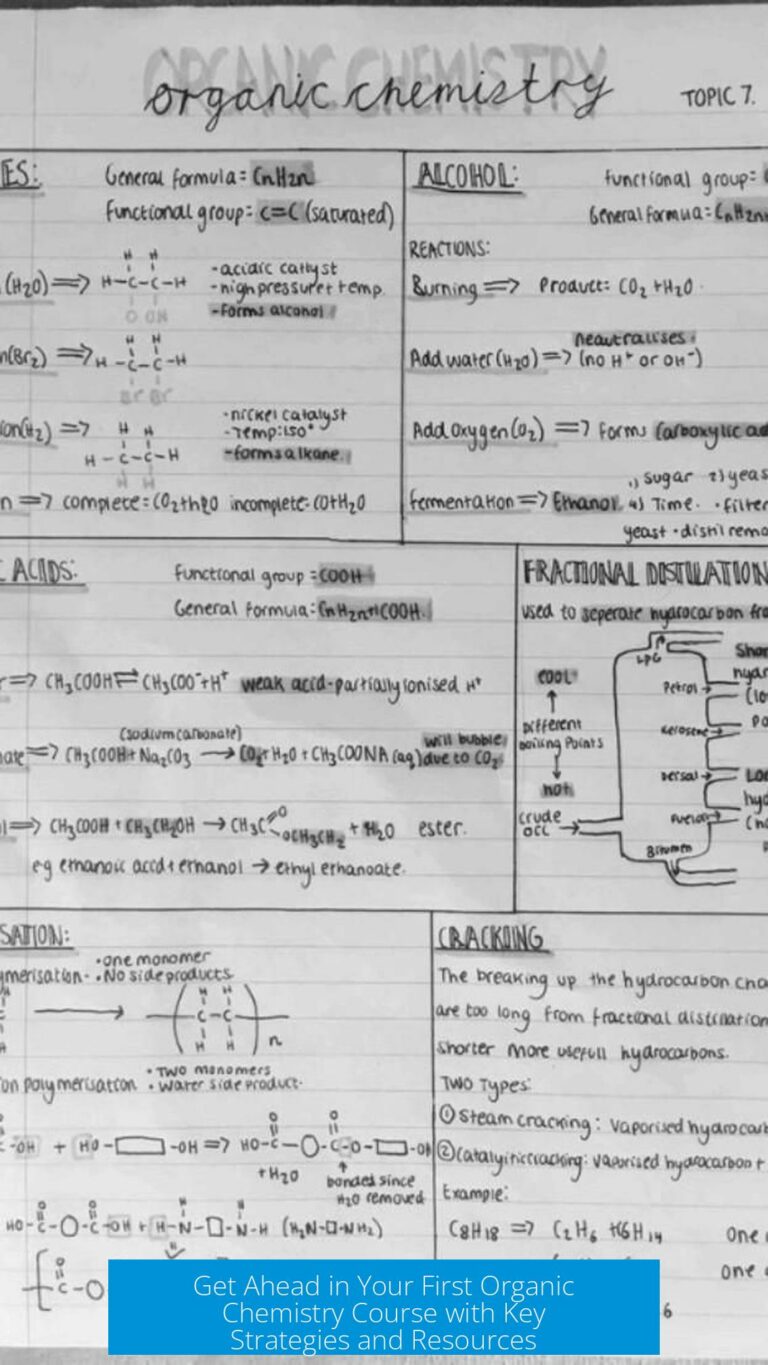 ORGANIC CHEMISTRY
organic chemistry
TOPIC 7.
ES:
General formula = CnH2n
Functional group: C=C (saturated)
(H2O) ⟹
H H
H-C-C-H
O OH
-acidic catlyst
-high pressure+ temp.
-forms alcohol
n(Br2) ⟹
H H
H-C-C-H
Br Br
ion(H2) ⟹
H H
H-C-C-H
H H
-nickel catalyst
-Temp:150°
-forms alkane.
n ⟹ complete = CO2+H2O incomplete-CO+H2O
ALCOHOL:
functional group =
General formua = CnH2n
REACTIONS:
Burning ⟹ Product: CO2 + H2O.
Add water (H2O) ⟹ neautralises (no H+ or OH-)
Add Oxygen (O2) ⟹ Forms Carboxylic ac
1) sugar 2) yeas
Fermentation ⟹ Ethanol. 4) Time. •filter
yeast •distil remo
ACIDS:
Functional group = COOH
General formula: CnH2n+1COOH.
⟹ CH3COOH ⇌ CH3COO-+H+ weak acid-partially ionised H+
(sodium carbonate)
nate ⟹ CH3COOH+Na2CO3 → CO2+H2O + CH3COONA (aq) will bubble due to CO2
l ⟹ CH3COOH + CH3CH2OH → CH3C O OCH2CH3 + H2O ester.
eg ethanoic accd + ethanol → ethyl ethanoate.
FRACTIONAL DISTILLATION
used to seperate hydrocarbon fro
COOL
↑
Different
boiling Points
↓
hot
crude
LPG
Petrol
kerosene
Fuel oil
Bitumen
Shor
hydr
(lo
po
Lo
hyd
SATION:
ymerisation- •one monomer
•No side products
H H
C-C
H H
n
on polymerisation •Two monomers
•water side product.
C-OH + HO-▭-OH ⟹ HO-C-O-C-O-▭-OH
+H2O
bonded since
H2O removed
HO-C-O-C-OH + H-N-▭-N-H (H2N-▭-NH2)
C-O
CRACKING
The breaking up the hydrocarbon cha
are too long from fractional distillation
shorter more usefull hydrocarbons.
TWO Types:
① Steam cracking: Vaporised hydrocarb
② Catalyiticcracking: vaporised hydrocarbon +
Example:
C8H18 ⟹ C2H6 + C6H14
one
one
6
Get Ahead in Your First Organic
Chemistry Course with Key
Strategies and Resources